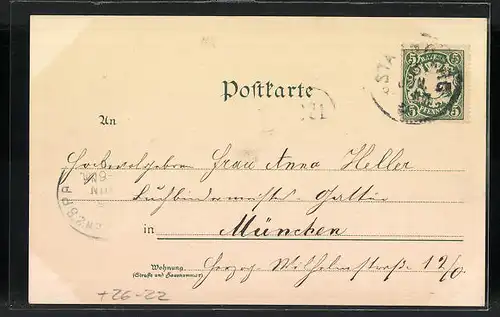 Postkarte
5 5
BAYERN
5 PFENNIG 5
An
Hochwolgeboren Frau Anna Heller
Buchbindermeister-Gattin
in München
Wohnung
(Straße und Hausnummer)
Herzog-Wilhelmstraße 12/0.
+26-22